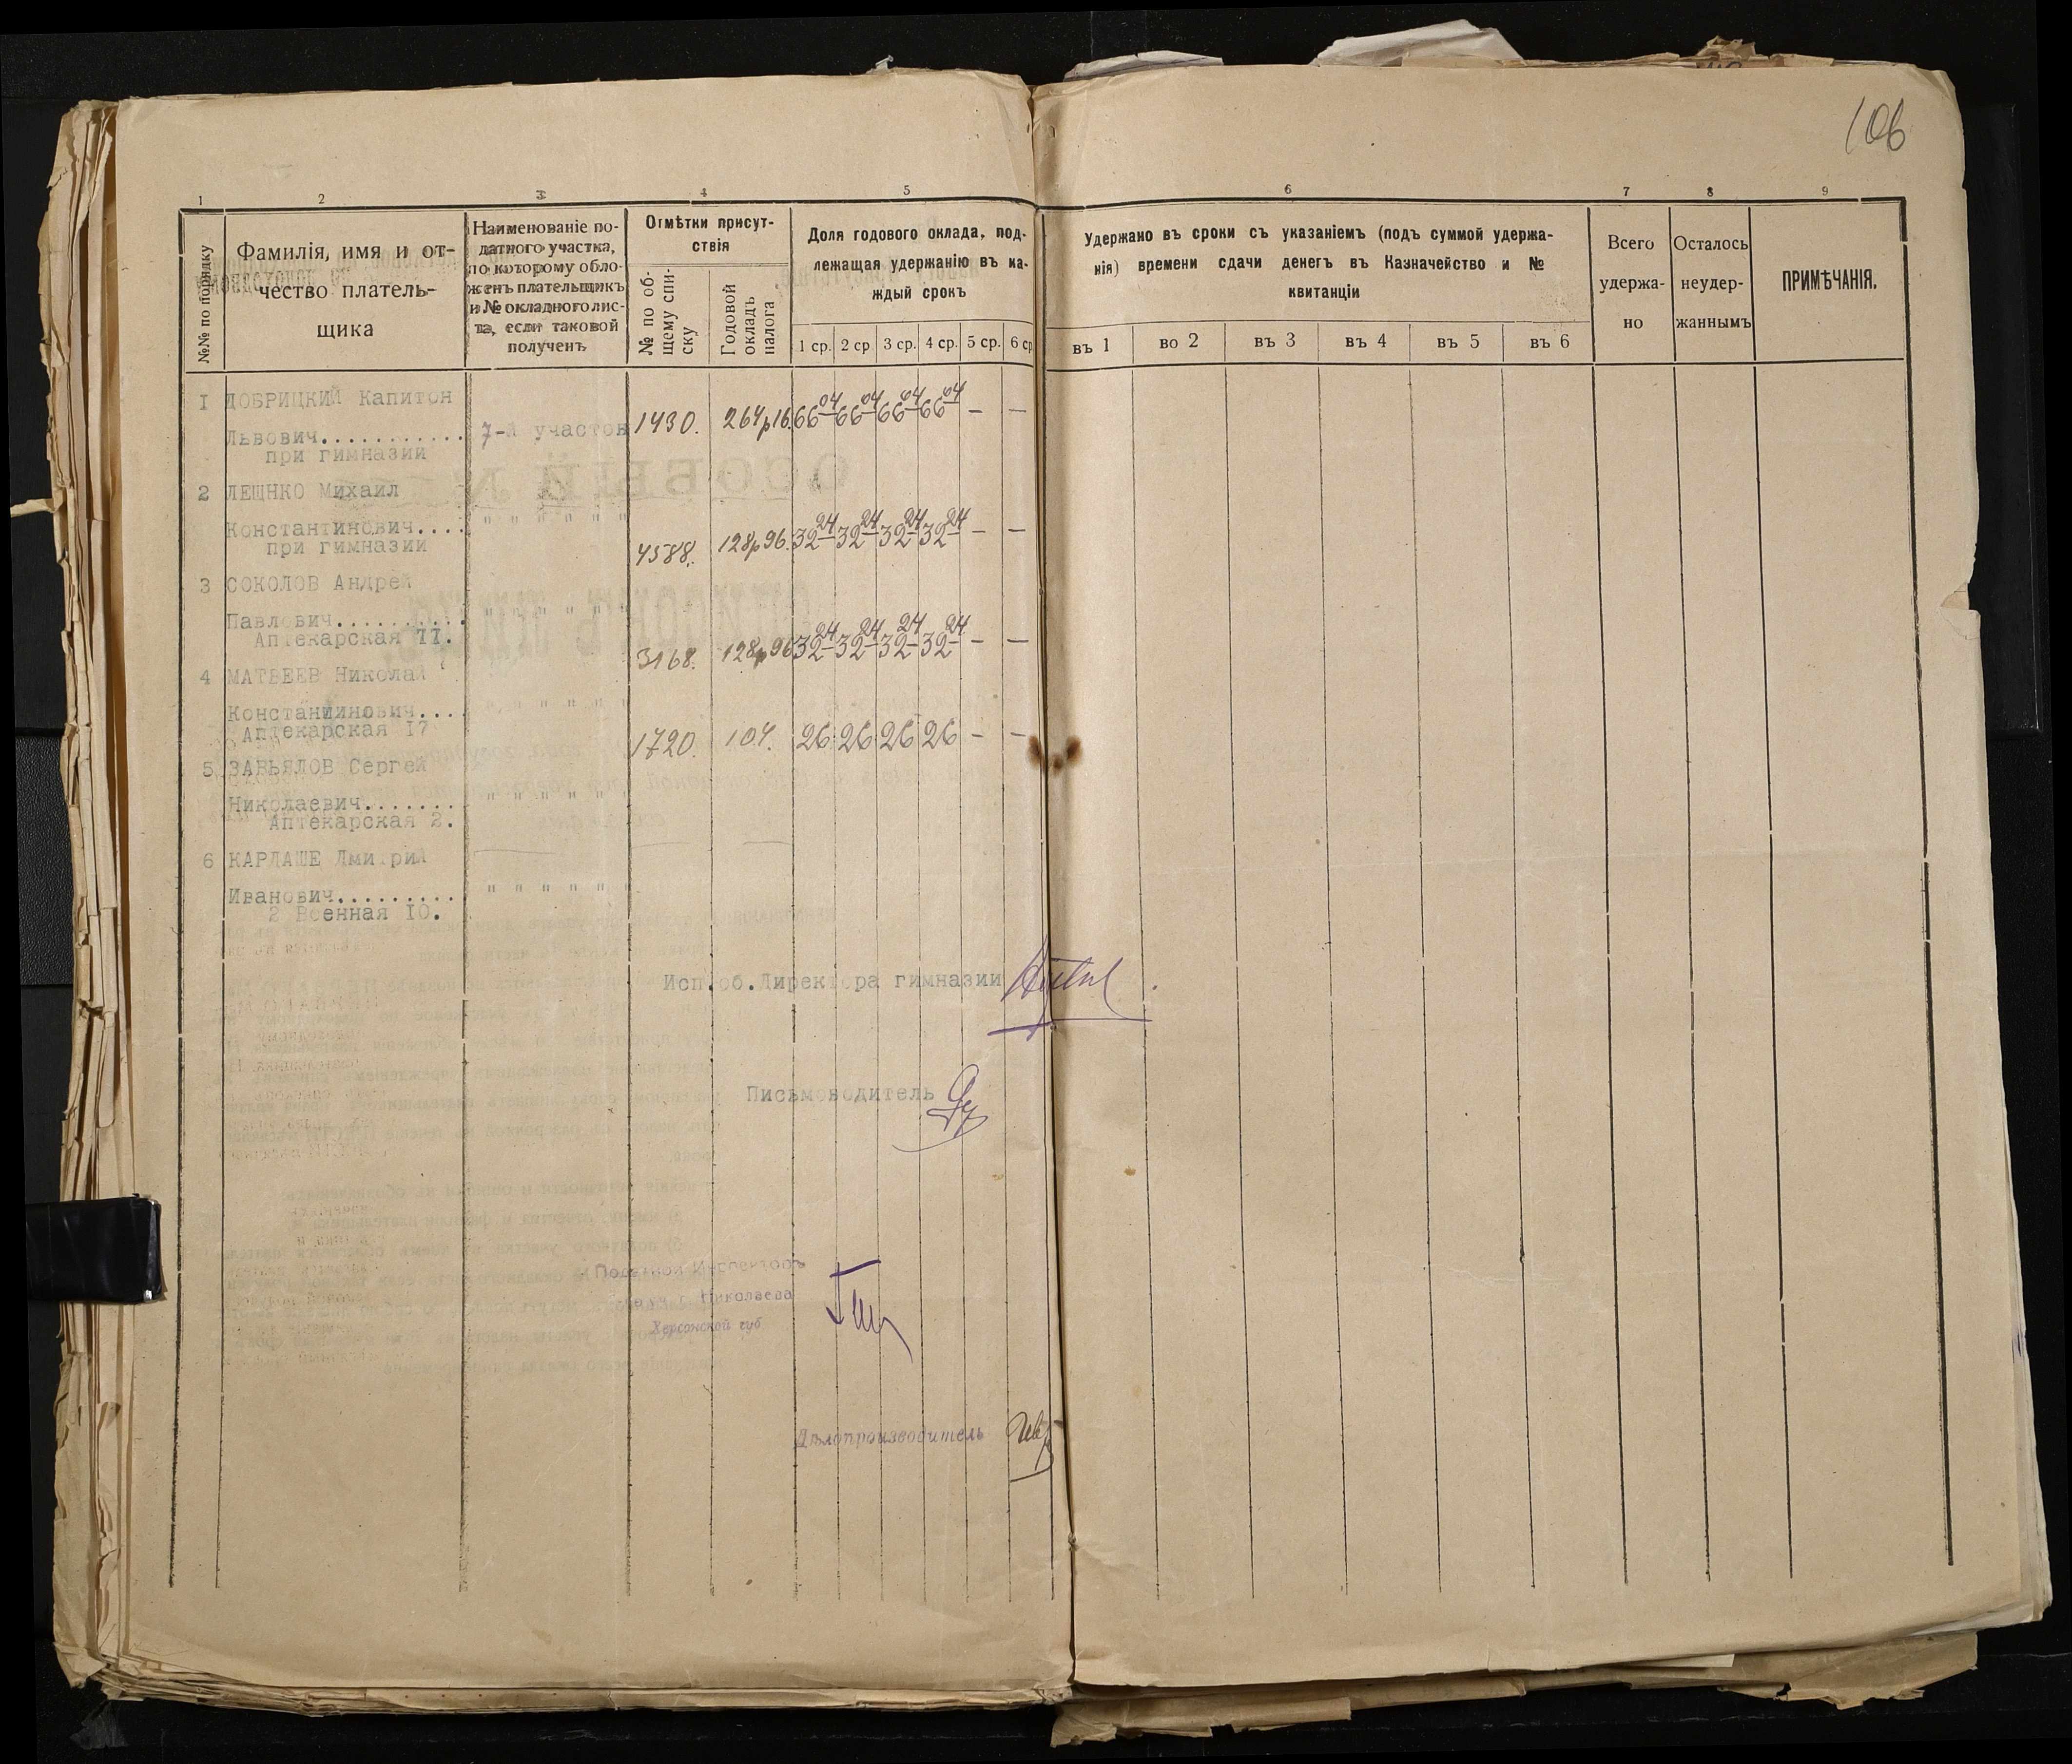 106
1 2 3 4 5 6 7 8 9
№№ по порядку
Фамилія, имя и от-
чество платель-
щика
Наименованіе по-
датного участка,
по которому обло-
женъ плательщикъ
и № окладного лис-
та, если таковой
полученъ
Отмѣтки присут-
ствія
№ по об-
щему спи-
ску
Годовой
окладъ
налога
Доля годового оклада, под-
лежащая удержанію въ ка-
ждый срокъ
1 ср. 2 ср 3 ср. 4 ср. 5 ср. 6 ср
Удержано въ сроки съ указаніемъ (подъ суммой удержа-
нія) времени сдачи денегъ въ Казначейство и №
квитанціи
въ 1 во 2 въ 3 въ 4 въ 5 въ 6
Всего
удержа-
но
Осталось
неудер-
жаннымъ
ПРИМѢЧАНІЯ.
I ДОБРИЦКИЙ Капитон
Львович........... 7-й участок 1430. 264р16. 66 04 66 04 66 04 66 04 — —
при гимназии
2 ЛЕЩНКО Михаил
Константинович.... " " " " " "
при гимназии 4588. 128р96. 32 24 32 24 32 24 32 24 — —
3 СОКОЛОВ Андрей
Павлович.......... " " " " " "
Аптекарская II. 3168. 128р96 32 24 32 24 32 24 32 24 — —
4 МАТВЕЕВ Николай
Константинович.... " " " " " "
Аптекарская I7 1720. 104. 26 26 26 26 — —
5 ЗАВЬЯЛОВ Сергей
Николаевич....... " " " " " "
Аптекарская 2.
6 КАРДАШЕ Дмитрий
Иванович......... " " " " " "
2 Военная I0.
Исп.об.Директора гимназии
Письмоводитель
Податной Инспекторъ
г. Николаева
Херсонской губ
Дѣлопроизводитель